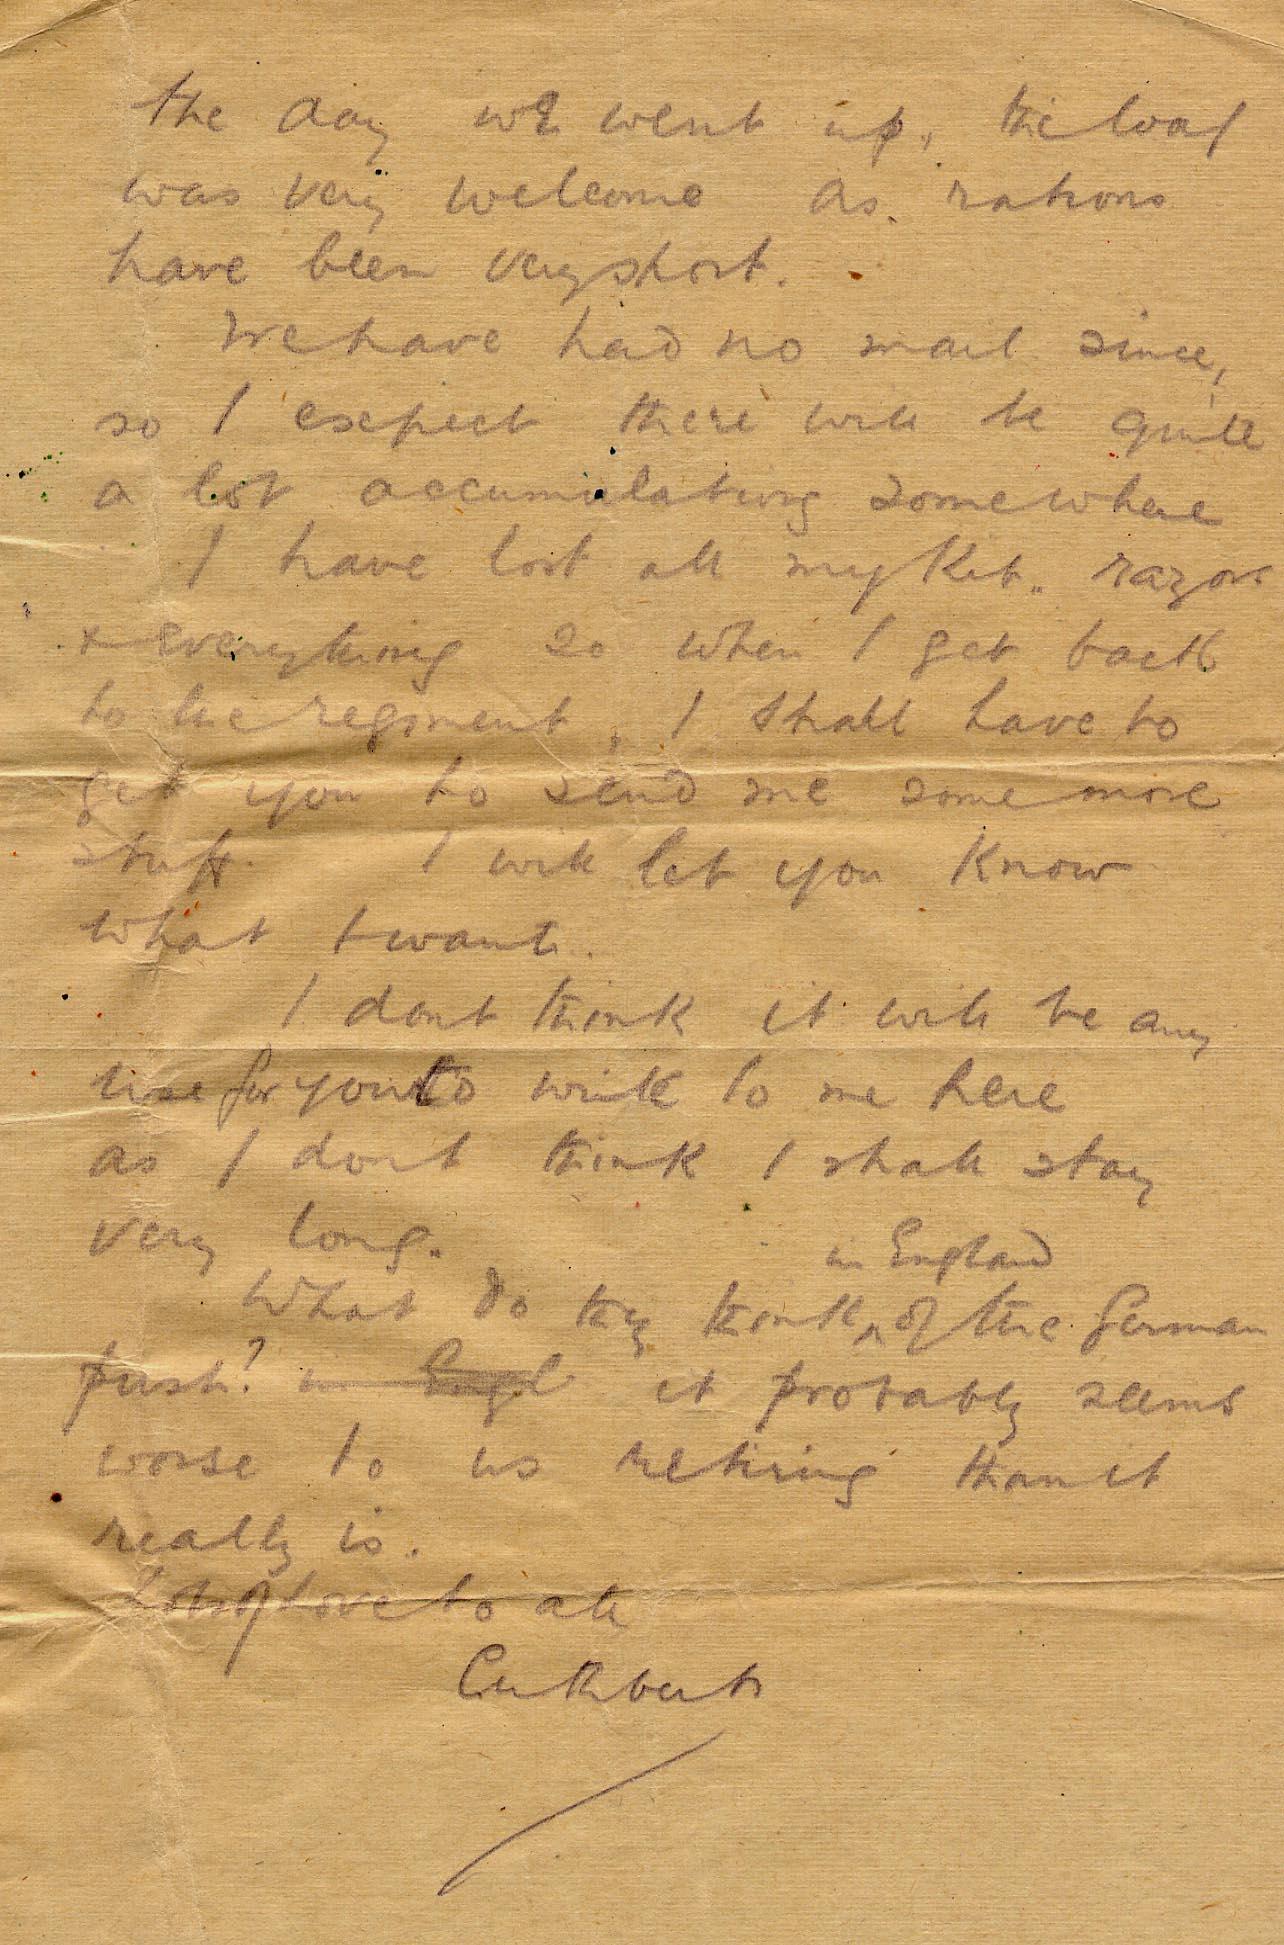 the day we went up, the loaf
was very welcome as rations
have been very short.
We have had no mail since,
so I expect there will be quite
a lot accumulating somewhere
I have lost all my Kit.. razors
& everything so when I get back
to the regiment, I shall have to
get you to send me some more
stuff. I will let you Know
what I want.
I dont think it will be any
use for you to write to me here
as I dont think I shall stay
very long.
in England
What do they think ^ of the German
push? in Engl it probably seems
worse to us retiring than it
really is.
Lots of Love to all
Cuthbert